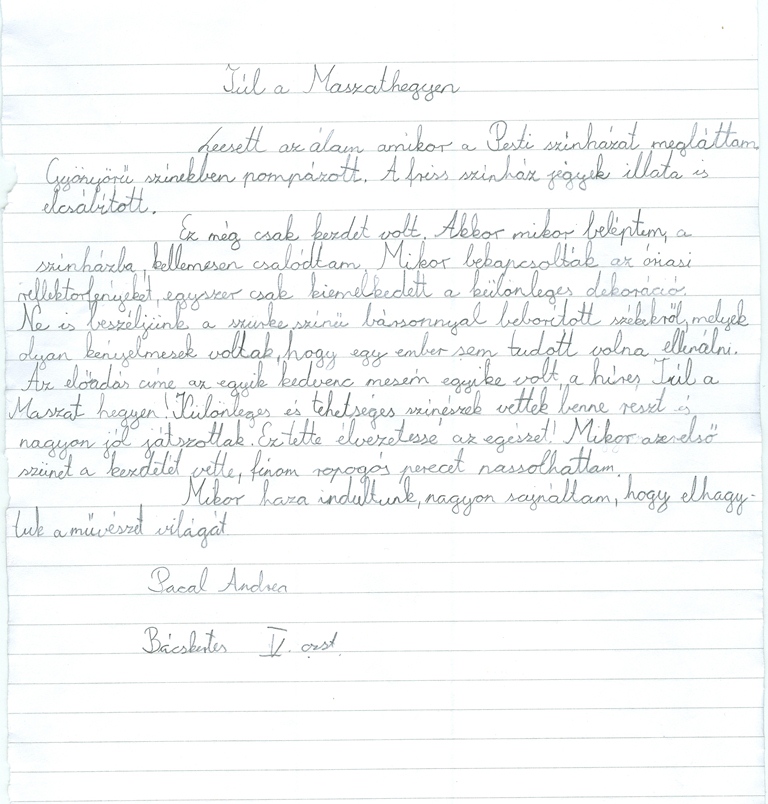 Túl a Maszathegyen
Leesett az álam amikor a Pesti szinházat megláttam.
Gyönyörű szinekben pompázott. A friss szinház jegyek illata is
elcsábitott.
Ez még csak kezdet volt. Akkor mikor beléptem, a
szinházba, kellemesen csalódtam. Mikor bekapcsolták az óriási
reflektorfényeket, egyszer csak kiemelkedett a különleges dekoráció.
Ne is beszéljünk a szürke szinü bársonnyal beboritott székekről, melyek
olyan kényelmesek voltak, hogy egy ember sem tudott volna ellenálni.
Az előadás cime az egyik kedvenc mesém egyike volt, a hires Túl a
Maszat hegyen! Különleges és tehetséges szinészek vettek benne részt és
nagyon jól játszottak. Ez tette élvezetessé az egészet! Mikor az első
szünet a kezdetét vette, finom ropogós perecet nassolhattam.
Mikor haza indultunk, nagyon sajnáltam, hogy elhagy-
tuk a müvészet világát.
Pacal Andrea
Bácskertes V. oszt.